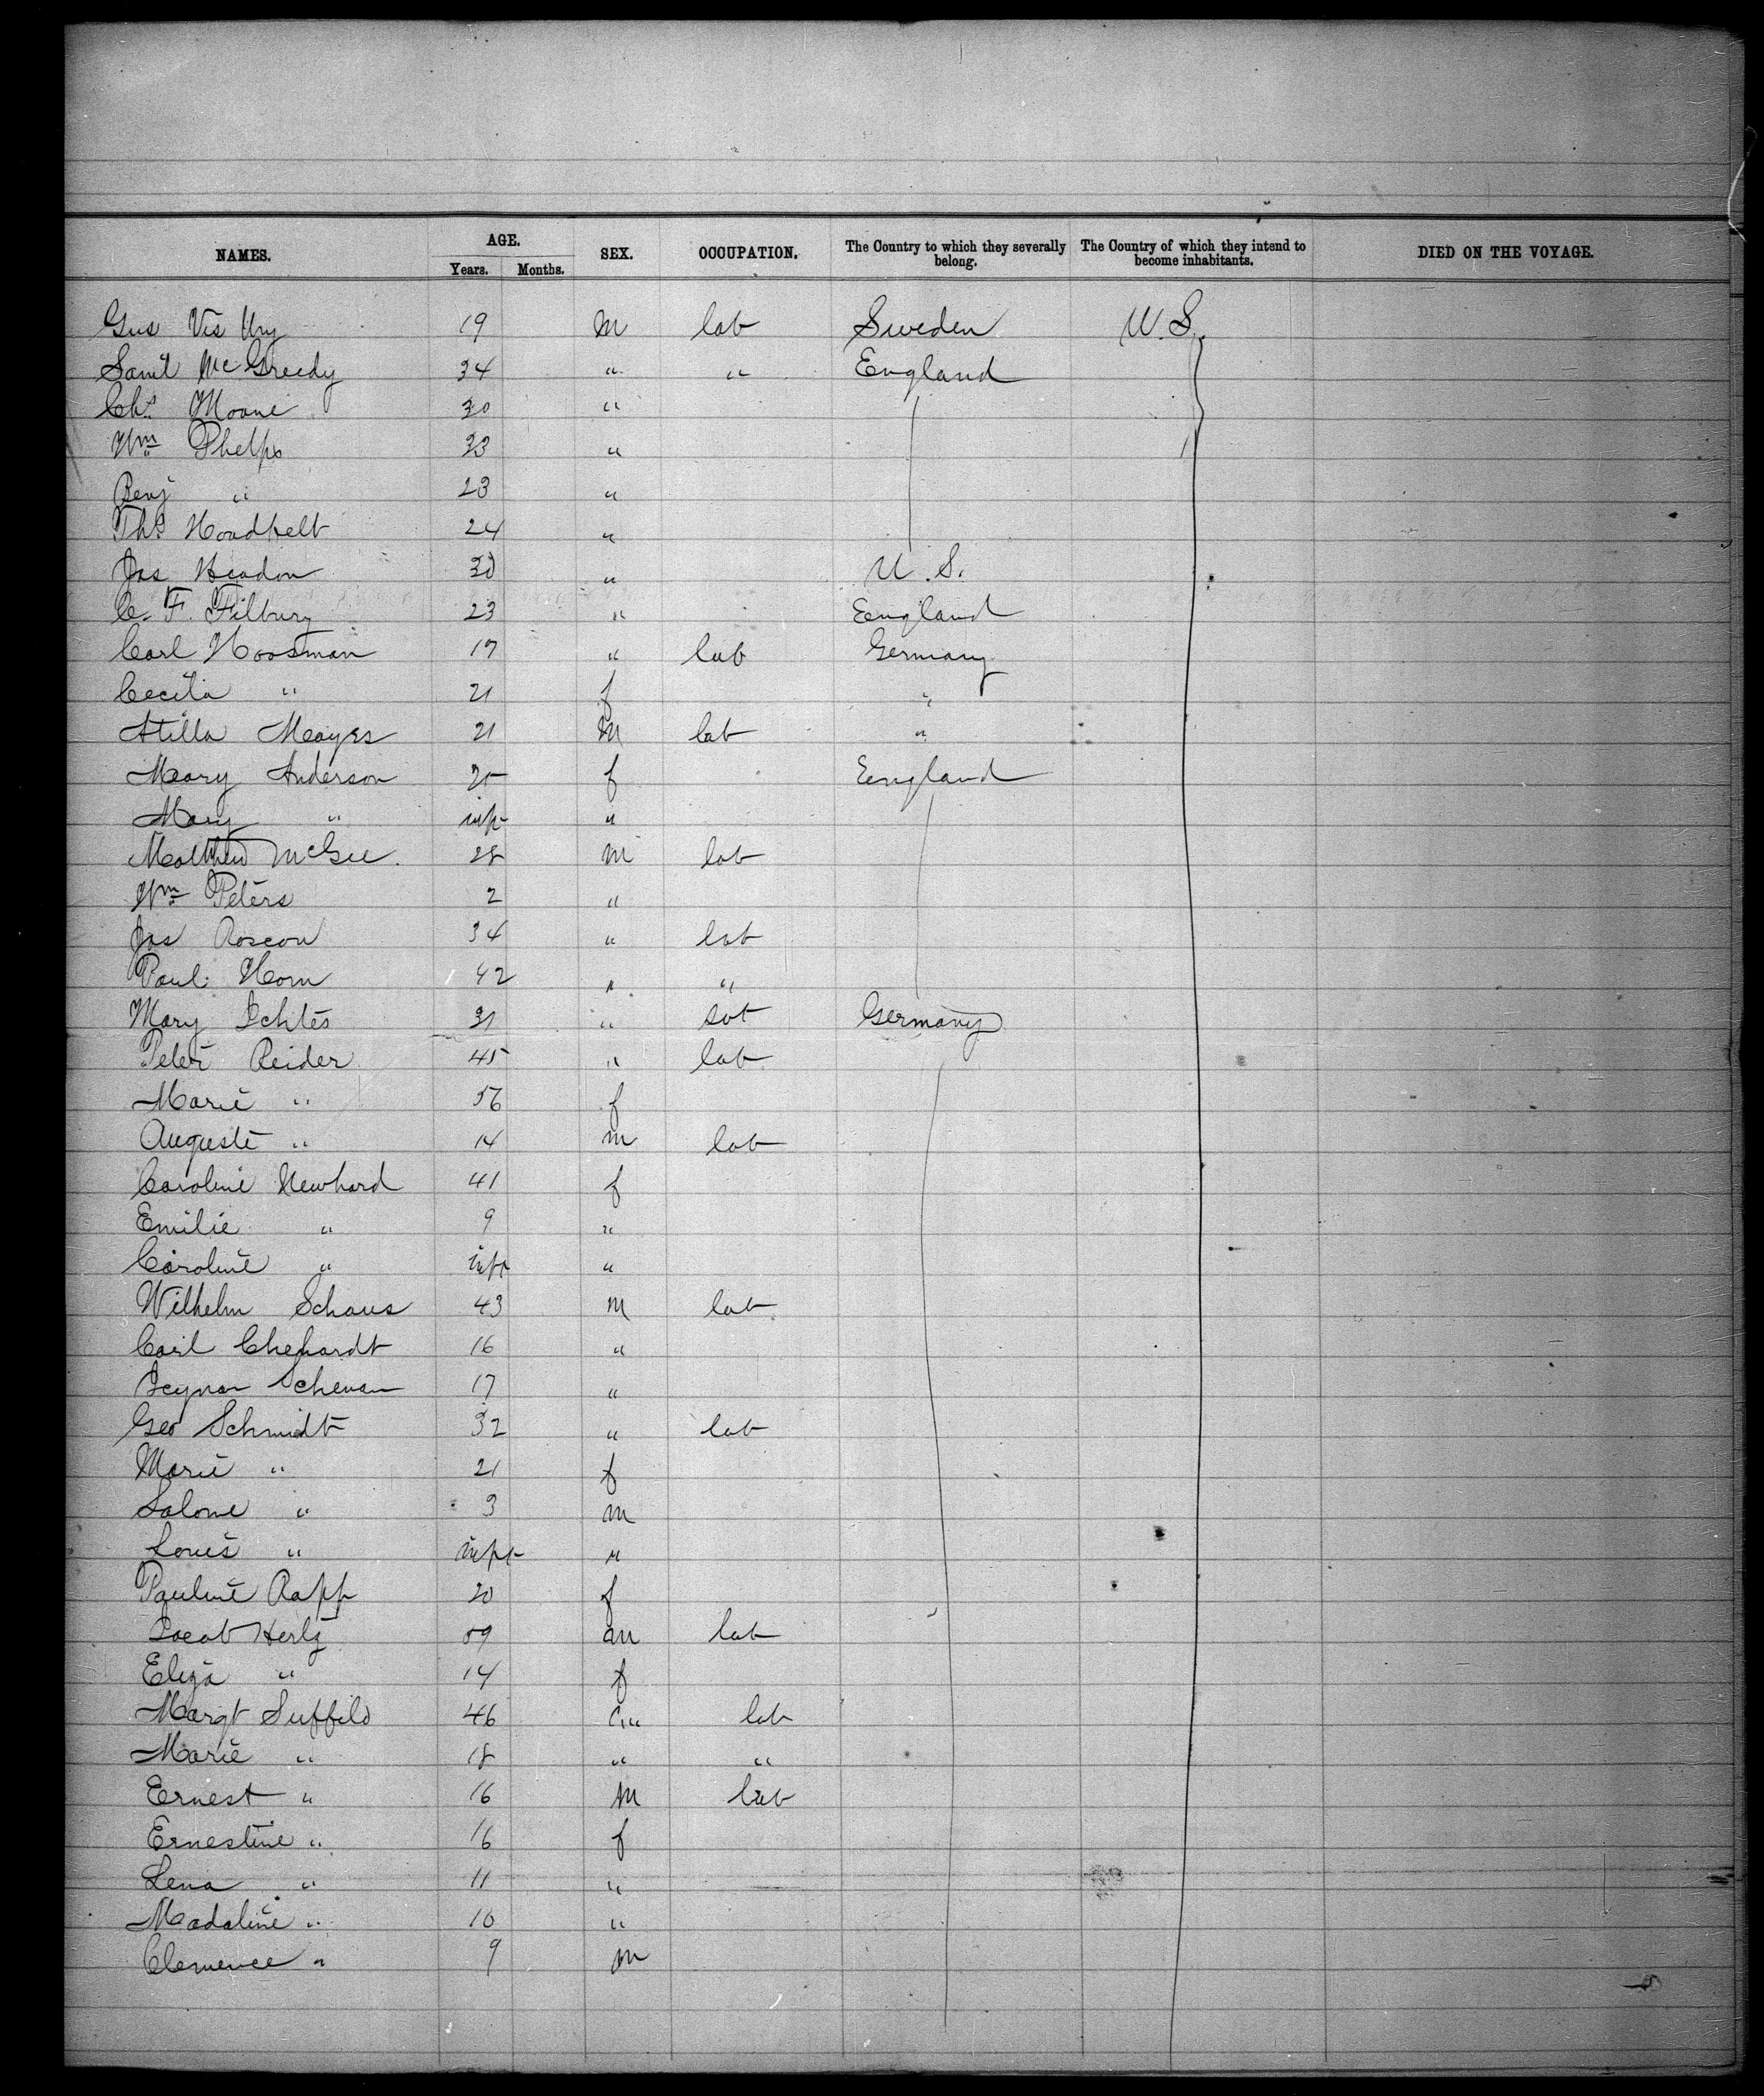 NAMES. AGE. Years. Months. SEX. OCCUPATION. The Country to which they severally belong. The Country of which they intend to become inhabitants. DIED ON THE VOYAGE.
Gus 19 M lab Sweden U.S.
Saml McGreedy 34 " " England
Chs. Moane 30 "
Wm Phelps 33 "
Benj " 23 "
Ths. 24 "
Jas Headon 30 " U.S.
C. F. Filbury 23 " England
Carl Hoosman 17 " lab Germany
Cecilia " 21 f "
Stilla Mayes 21 M lab "
Mary Anderson 25 f England
Mary " inft "
Matthew McGee. 28 M lab
Wm Peters 2 "
Jas Roscow 34 " lab
Paul Horn 42 " "
Mary 31 " Germany
Peter Reider 45 " lab
Marie " 56 f
Auguste " 14 m lab
Caroline Newhard 41 f
Emilie " 9 "
Caroline " inft "
Wilhelm Schaus 43 M lab
Carl 16 "
17 "
Geo Schmidt 32 " lab
Marie " 21 f
Salome " 3 m
Louis " inft "
Pauline Rapp 20 f
Jacob Hertz 59 m lab
Eliza " 14 f
Margt Suffild 46 lab
Marie " 18 " "
Ernest " 16 M lab
Ernestine " 16 f
Lena " 11 "
Madaline " 10 "
Clemence " 9 m